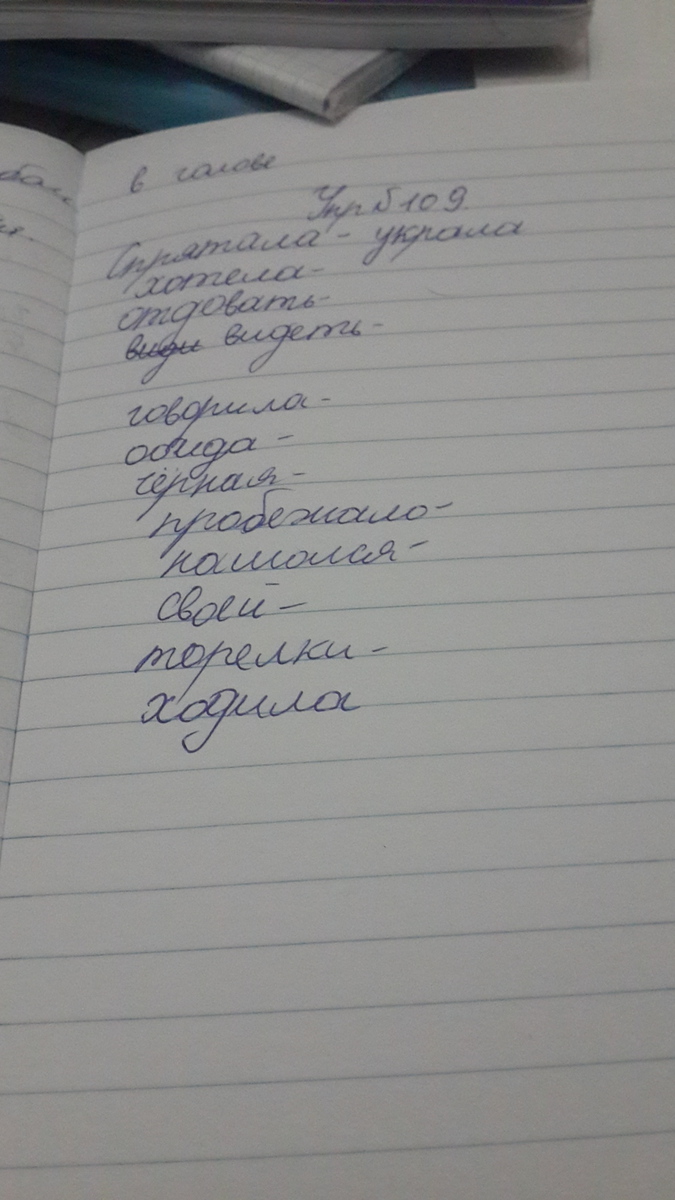 в голове
Упр № 109.
Спрятала - украла
хотела-
отдовать-
види видеть-
говорила-
обида-
чёрная-
пробежало-
нашолся-
своей-
торелки-
ходила